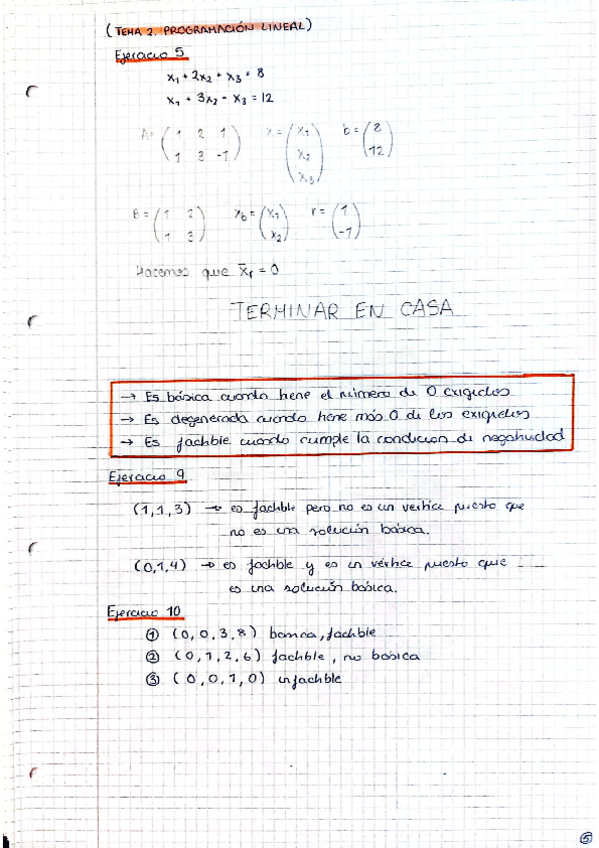 (TEMA 2. PROGRAMACIÓN LINEAL)
Ejercicio 5
x₁ + 2x₂ + x₃ = 8
x₁ + 3x₂ - x₃ = 12
A = (1 2 1 / 1 3 -1) x = (x₁ / x₂ / x₃) b = (8 / 12)
B = (1 2 / 1 3) x_b = (x₁ / x₂) r = (1 / -1)
Hacemos que x̄r = 0
TERMINAR EN CASA
→ Es básica cuando tiene el número de 0 exigidos
→ Es degenerada cuando tiene más 0 de los exigidos
→ Es factible cuando cumple la condicion de negatividad
Ejercicio 9
(1,1,3) → es factible pero no es un vertice puesto que
no es una solución básica.
(0,1,4) → es factible y es un vértice puesto que
es una solución básica.
Ejercicio 10
① (0,0,3,8) basica, factible
② (0,1,2,6) factible, no básica
③ (0,0,1,0) infactible
⑤